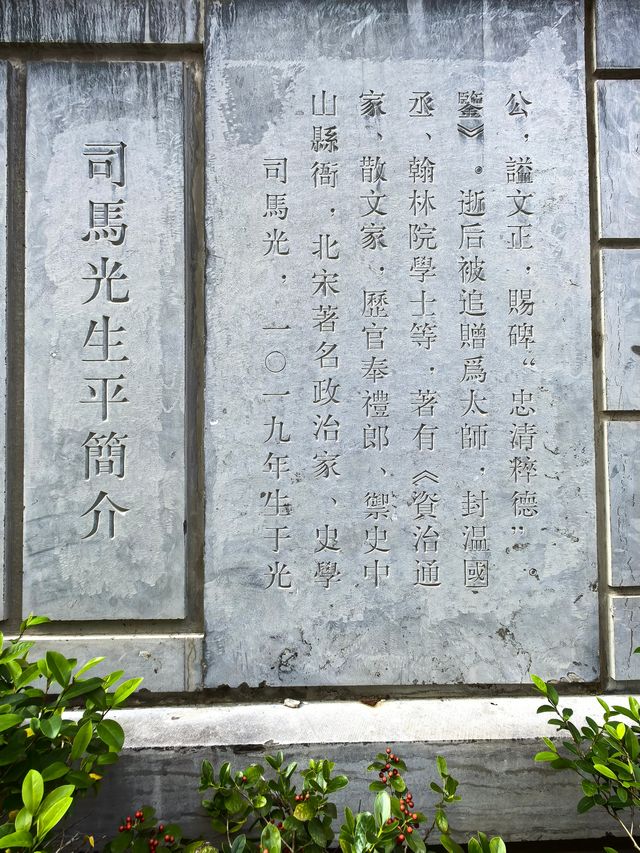 司馬光生平簡介
司馬光，一〇一九年生于光
山縣衙，北宋著名政治家、史學
家、散文家，歷官奉禮郎、禦史中
丞、翰林院學士等．著有《資治通
鑒》．逝后被追贈爲太師，封温國
公，謚文正，賜碑“忠清粹德”．